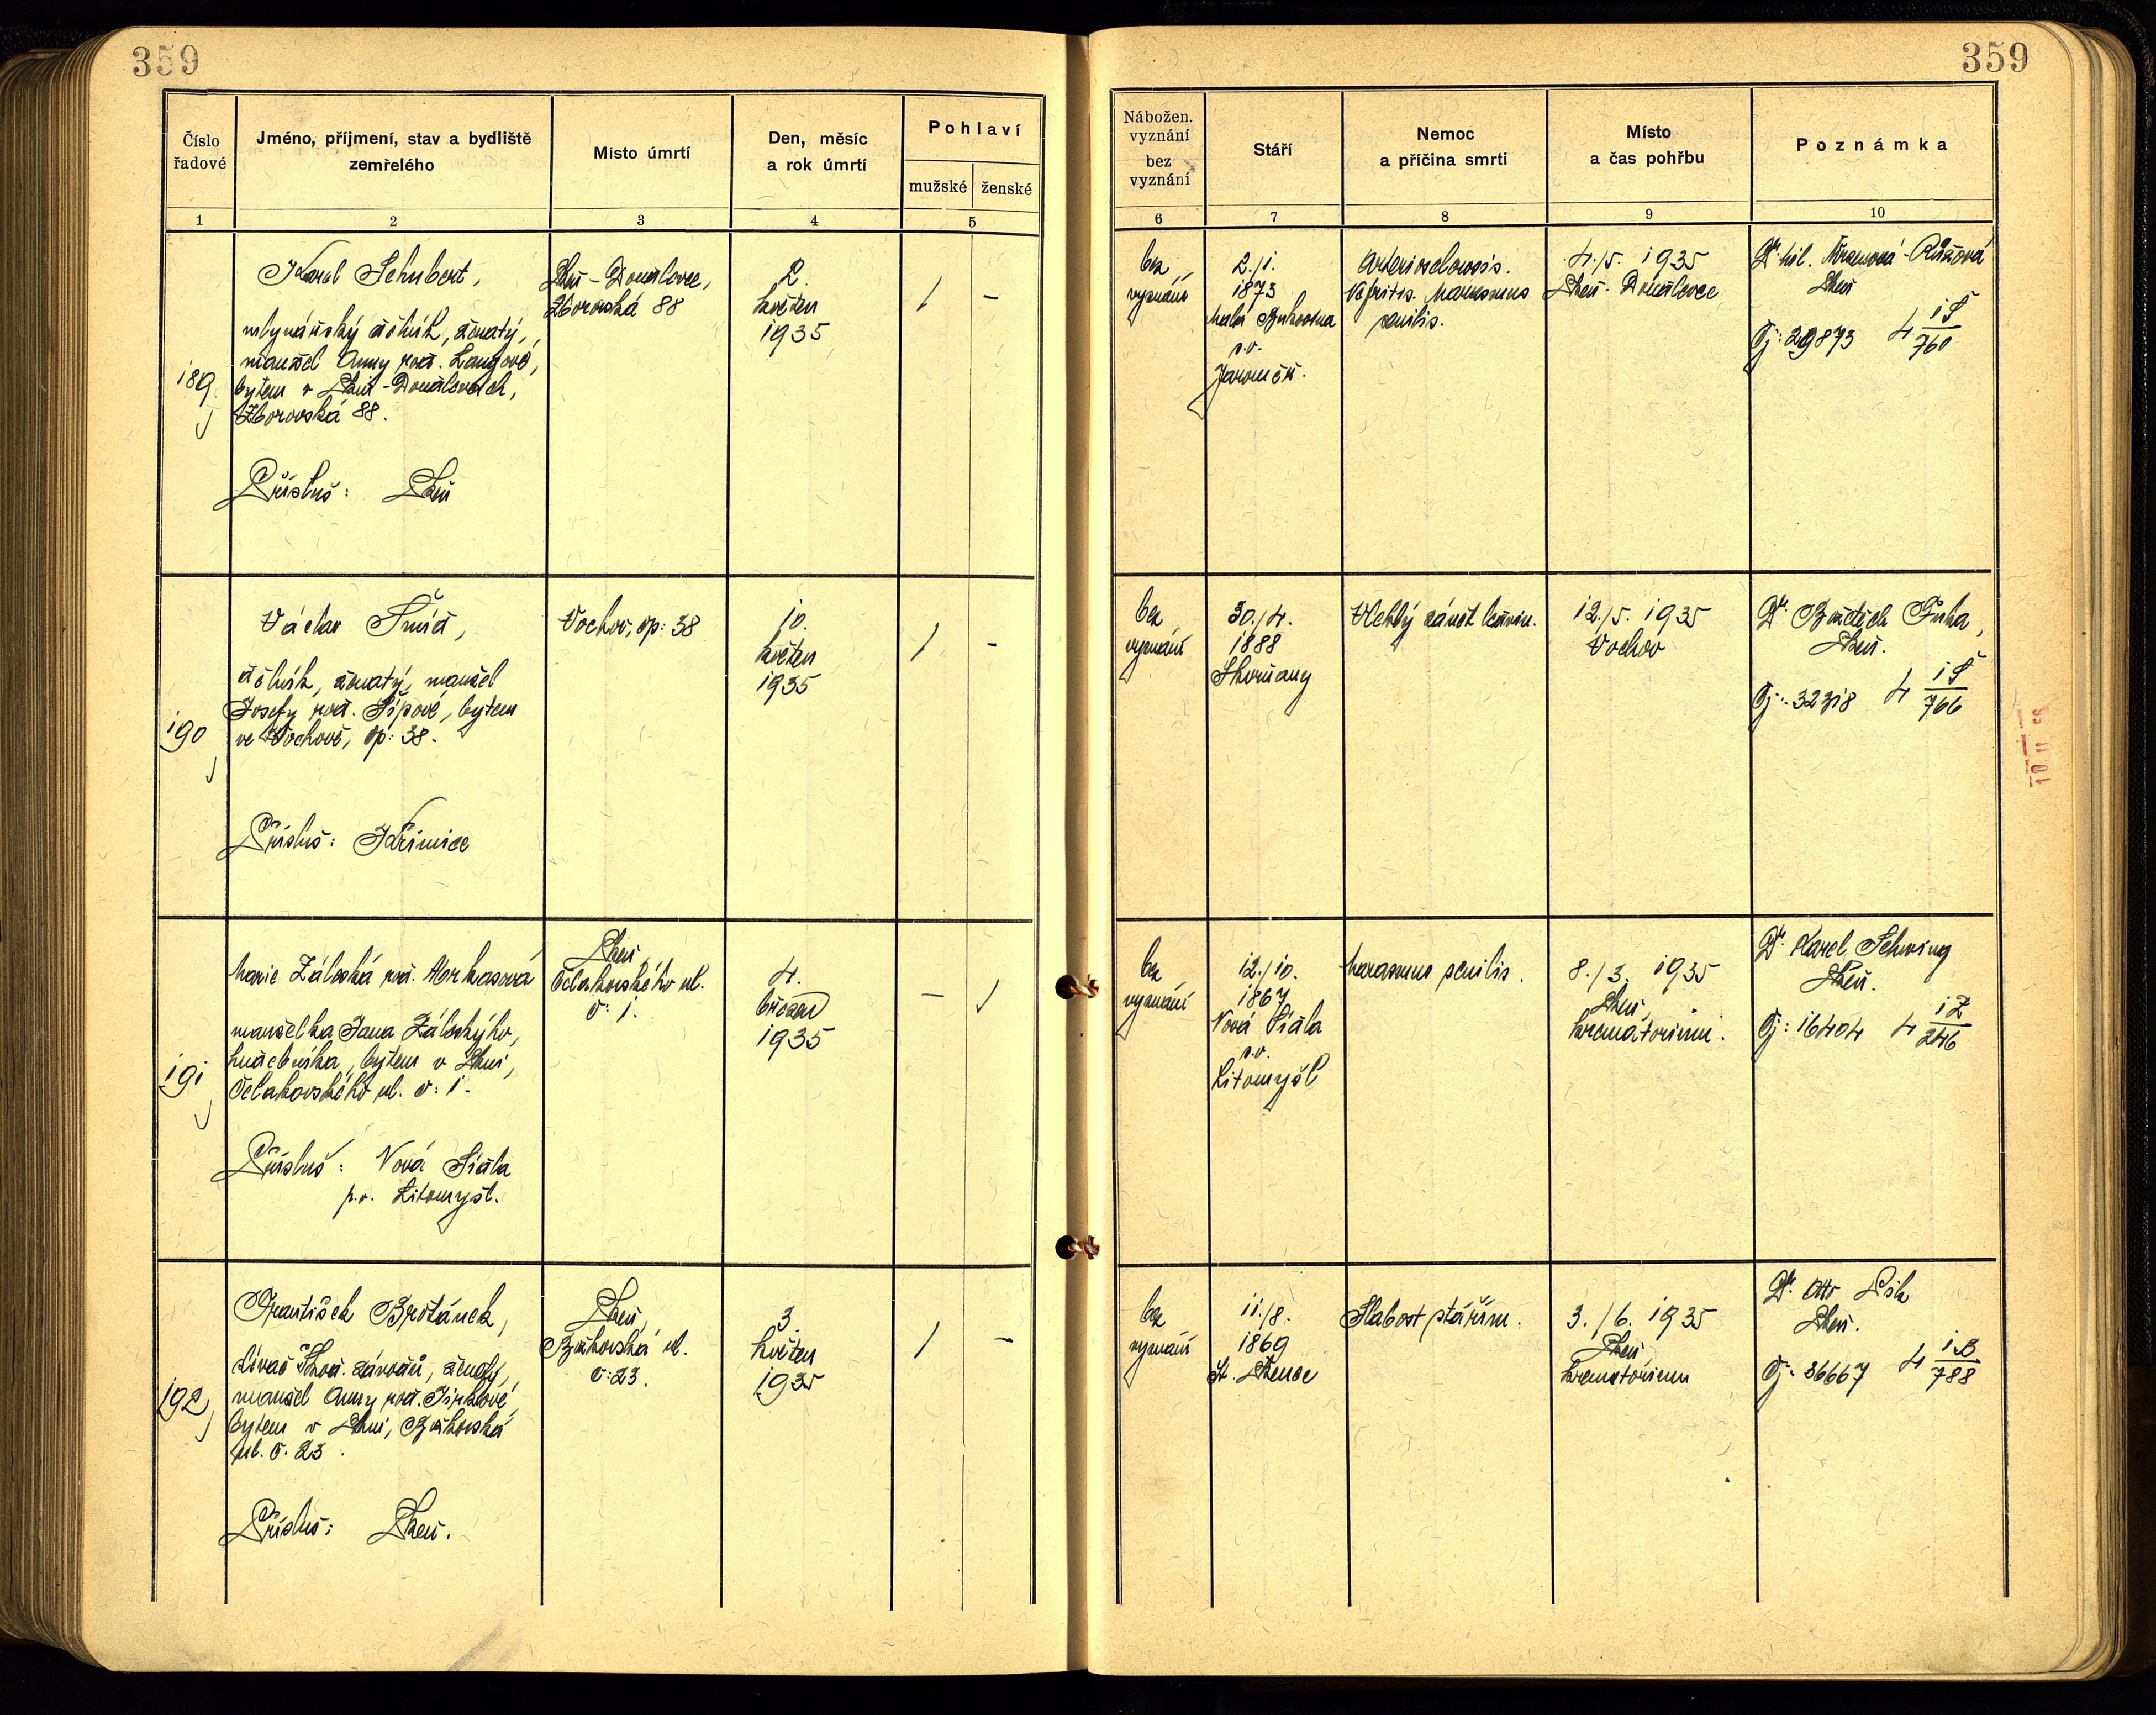 359
359
Číslo řadové
Jméno, příjmení, stav a bydliště
zemřelého
Místo úmrtí
Den, měsíc
a rok úmrtí
Pohlaví
mužské
ženské
1
2
3
4
5
Nábožen.
vyznání
bez
vyznání
Stáří
Nemoc
a příčina smrti
Místo
a čas pohřbu
Poznámka
6
7
8
9
10
189.
Karel Schubert,
mlynářský dělník, ženatý,
manžel Anny roz. Langové,
bytem v Plzni-Doudlevcích,
Zborovská 88.
Přísluš: Plzeň
Plzeň-Doudlevce,
Zborovská 88
2.
květen
1935
/
-
bez
vyznání
2./1.
1873
Malá
p.o.
Jaroměř.
Arteriosclerosis.
Nefritis. Marasmus
senilis.
4./5. 1935
Plzeň-Doudlevce
Růžová
Plzeň
čj: 29873 4 1Š/760
190
Václav Šmíd,
dělník, ženatý, manžel
Josefy roz. Šípové, bytem
ve Vochově, čp: 38.
Přísluš: Křimice
Vochov, čp: 38
10.
květen
1935
/
-
bez
vyznání
30./4.
1888
Skvrňany
Vleklý zánět ledvin.
12./5. 1935
Vochov
Dr. Bedřich Fuha,
Plzeň.
čj: 32318 4 1Š/766
191
Marie Záleská roz.
manželka Jana Záleského,
hudebníka, bytem v Plzni,
Čelakovského ul. č: 1.
Přísluš: Nová Sídla
p.o. Litomyšl.
Plzeň,
Čelakovského ul.
č: 1.
4.
březen
1935
-
/
bez
vyznání
12./10.
1867
Nová Sídla
p.o.
Litomyšl
Marasmus senilis.
8./3. 1935
Plzeň,
krematorium.
Dr. Karel Schwing
Plzeň.
čj: 16404 4 1Z/246
192
František Brotánek,
slévač Škod. závodů, ženatý,
manžel Anny roz. Jírklové,
bytem v Plzni,
ul. č. 23.
Přísluš: Plzeň.
Plzeň,
č: 23.
3.
květen
1935
/
-
bez
vyznání
11./8.
1869
St. Plzenec
Slabost stářím.
3./6. 1935
Plzeň
krematorium
Dr. Otto
Plzeň.
čj: 36667 4 1B/788